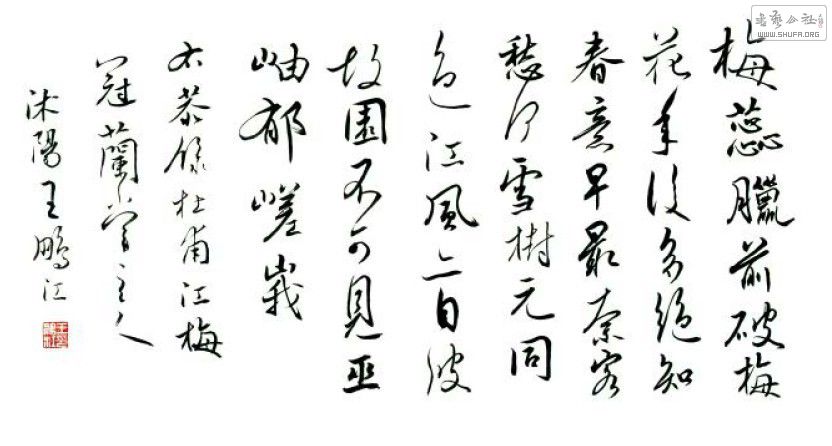 梅蕊臘前破梅
花年後多絕知
春意早最奈客
愁何雪樹元同
色江風亦自波
故園不可見巫
岫郁嵯峨
右恭錄杜甫江梅
冠蘭堂主人
沭陽王鵬江
書藝公社
WWW.SHUFA.ORG